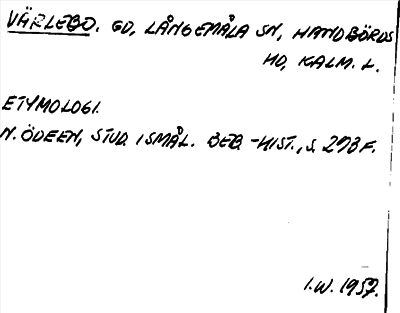 VÄRLEBO. GD, LÅNGEMÅLA SN, HANDBÖRDS
HD, KALM. L.
ETYMOLOGI.
N. ÖDEEN, STUD. I SMÅL. BEB.-HIST., S. 298 F.
I.W. 1957.